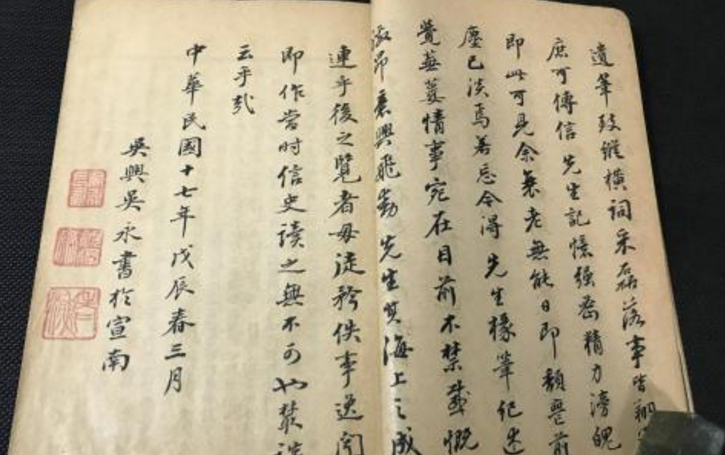 遺筆致縱橫詞采磊落事皆翔
庶可傳信先生記憶強密精力滂魄
即此可見余衰老無能日即頹唐前
塵已淡焉若忘今得先生椽筆紀述
覺蕪蔞情事宛在目前不禁感慨
激昂意興飛動先生其海上之成
連乎後之覽者毋徒矜佚事遺聞
即作當时信史讀之無不可也叢談
云乎哉
中華民國十七年戊辰春三月
吳興吳永書於宣南